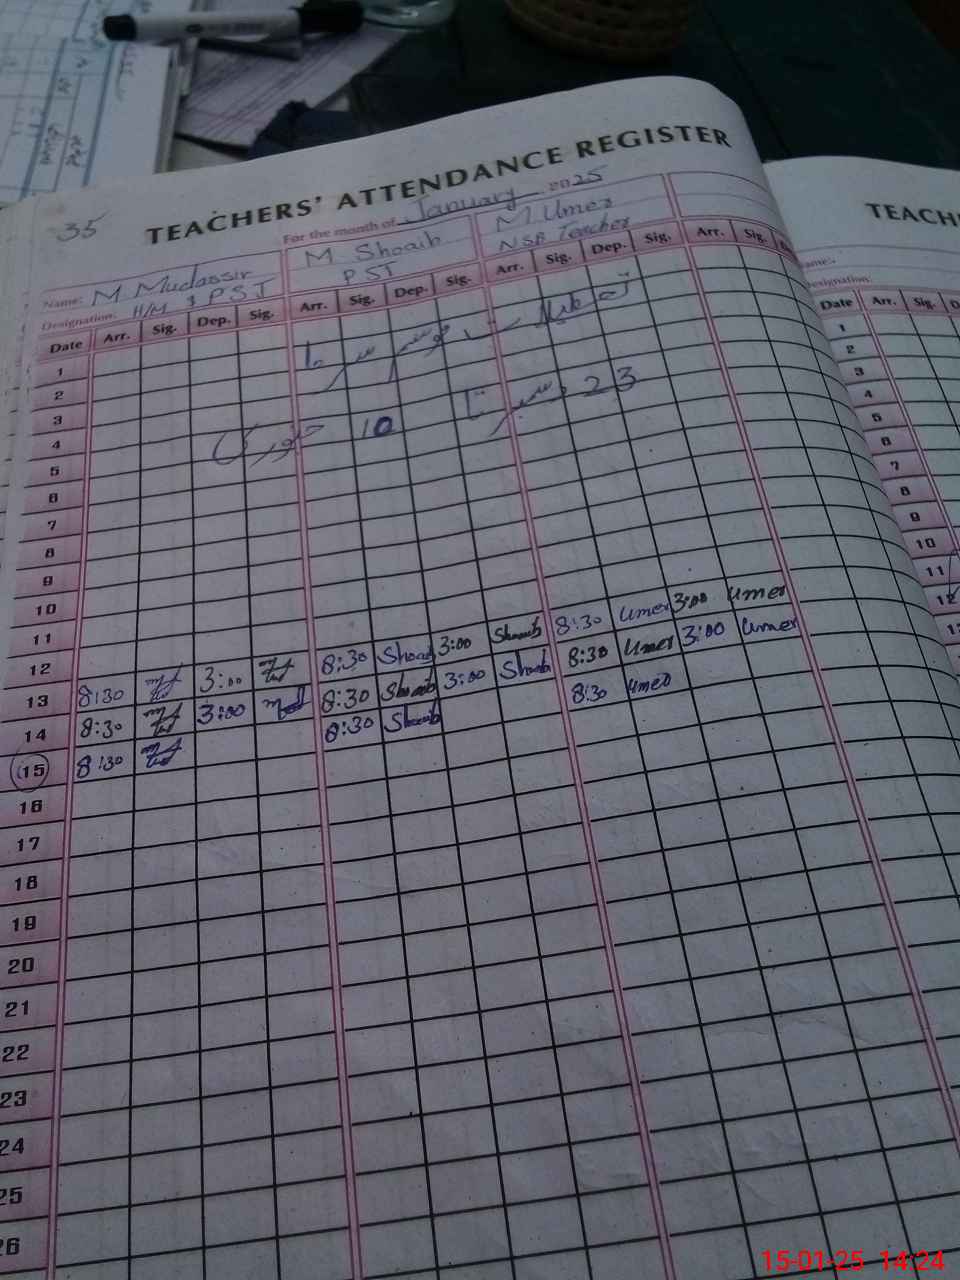 35
TEACHERS' ATTENDANCE REGISTER
For the month of January 2025
Name: M Mudassir M Shoaib M Umer
Designation: H/M & PST PST NSB Teacher
Date Arr. Sig. Dep. Sig. Arr. Sig. Dep. Sig. Arr. Sig. Dep. Sig. Arr. Sig.
1
2
3
4
5
6
7
8
9
10
11
12
13 8:30 3:00 8:30 Shoaib 3:00 Shoaib 8:30 Umer 3:00 Umer
14 8:30 3:00 8:30 Shoaib 3:00 Shoaib 8:30 Umer 3:00 Umer
15 8:30 8:30 Shoaib 8:30 Umer
16
17
18
19
20
21
22
23
24
25
26
تعطیلات موسم سرما
23 دسمبر تا 10 جنوری
TEACH
Name:
Designation:
Date Arr. Sig.
1
2
3
4
5
6
7
8
9
10
11
12
15-01-25 14:24